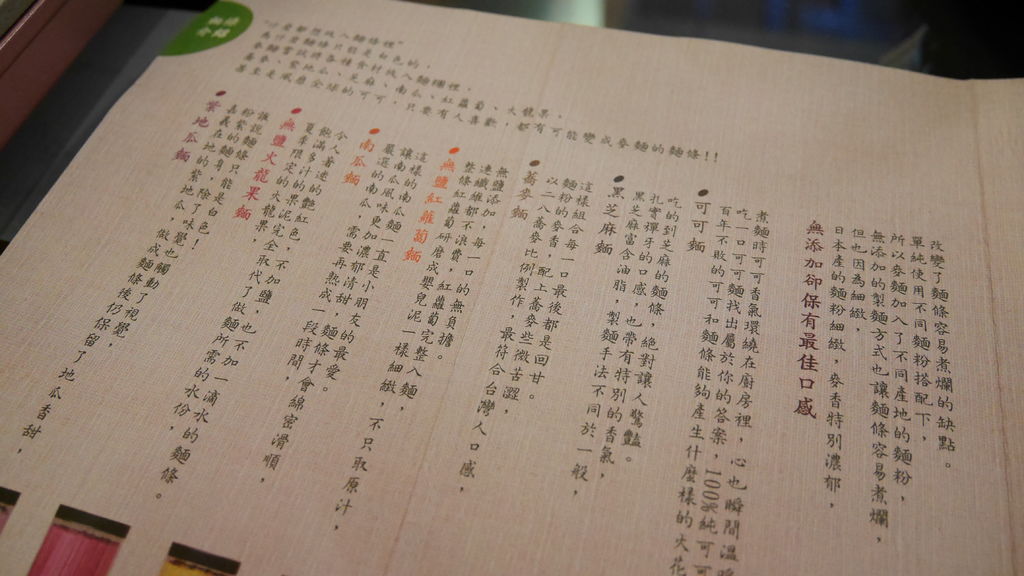 麵條
介紹
"什麼都想放入麵條裡"
為什麼麵條只能是白色的，
麥麵嘗試將各種食材放入麵糰裡，
蕎麥、紫地瓜、芝麻、南瓜、紅蘿蔔、火龍果，
甚至是風靡全球的可可，只要有人喜歡，都有可能變成麥麵的麵條!!
紫地瓜麵
嘉義在地的紫地瓜，做成麵條後仍保留了地瓜香甜，
粉紫的麵身，除了味覺，也觸動了視覺，
誰說麵條只能是白色！
無鹽火龍果麵
夏季限定的火龍果，完全取代了做麵所需的水份，麵條。
飽滿多汁的果泥完全不加鹽，也不加一滴水
令人著迷的艷紅色，
南瓜麵
嚴選的南瓜，需要再熟成一段時間，麵條才會綿密滑順，
讓南瓜風味更加濃郁清甜，
這樣的南瓜麵一直是小朋友的最愛。
無鹽紅蘿蔔麵
整條紅蘿蔔研磨成嬰兒泥一樣細緻，不只取原汁，
連纖維都不浪費，紅蘿蔔完整入麵，
無鹽添加，每一口的無負擔。
蕎麥麵
以二八蕎麥比例製作，最符合台灣人口感，
麵粉的麥香，配上蕎麥些微苦澀，
這樣組合每一口最後都是回甘。
黑芝麻麵
黑芝麻富含油脂，製麵手法不同於一般，
扎實彈牙的口感，也帶有特別的香氣，
吃的到芝麻的麵條，絕對讓人驚豔。
可可麵
百年不敗的可可和麵條能夠產生什麼樣的火花
吃一口可可麵找出屬於你的答案，100%純可可
煮麵時可可香氣環繞在廚房裡，心也瞬間溫暖
無添加卻保有最佳口感
日本產的麵粉細緻，麥香特別濃郁，
但也因為細緻，
無添加的製麵方式也讓麵條容易煮爛，
所以麥麵加入了不同產地的麵粉，
單純使用不同麵粉搭配下，
改變了麵條容易煮爛的缺點。